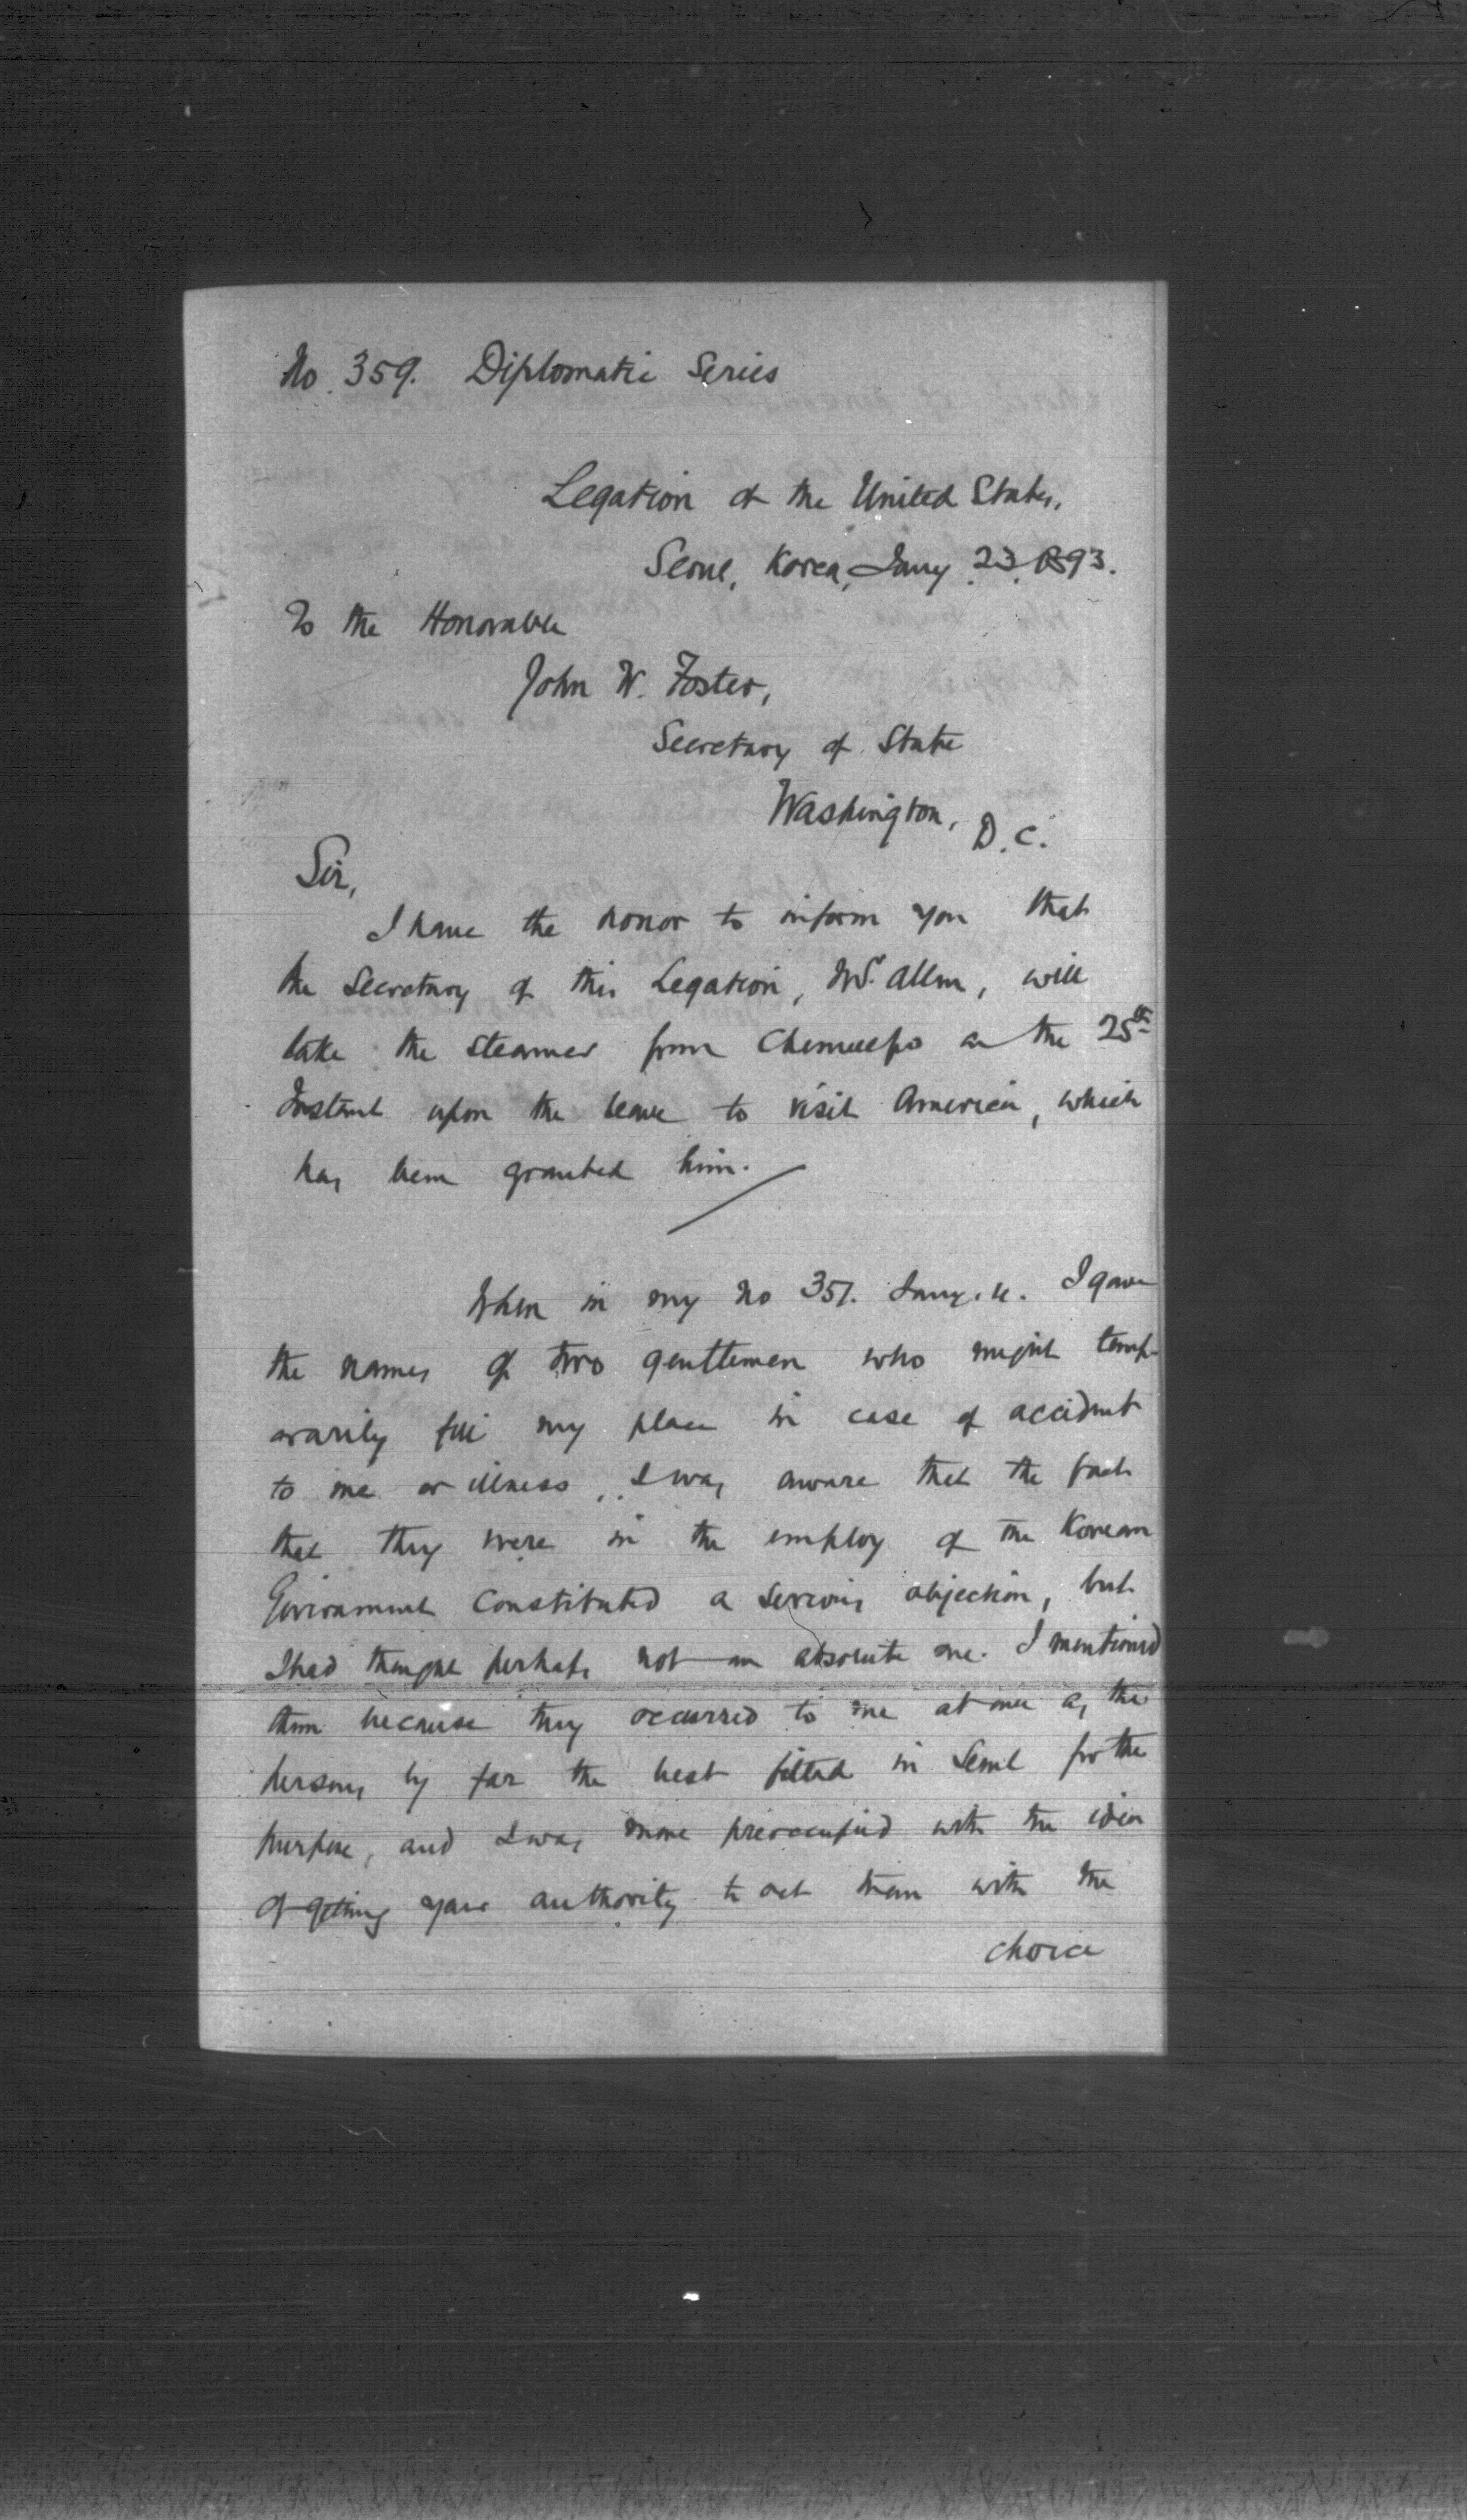 No. 359. Diplomatic Series
Legation of the United States,
Seoul, Korea, Jany 23, 1893.
To the Honorable
John W. Foster,
Secretary of State
Washington, D.C.
Sir,
I have the honor to inform you that
the Secretary of this Legation, Allen, will
take the steamer from Chemulpo on the 25th
Instant upon the leave to visit America, which
has been granted him.
When in my No 351. Jany. I gave
the names of two gentlemen who might temp-
orarily fill my place in case of accident
to me or illness, I was aware that the fact
that they were in the employ of the Korean
Government constituted a serious objection, but
I had thought perhaps not an absolute one. I mentioned
them because they occurred to me at once as the
persons by far the best fitted in Seoul for the
purpose, and I was more preoccupied with the idea
of getting your authority to act than with the
choice